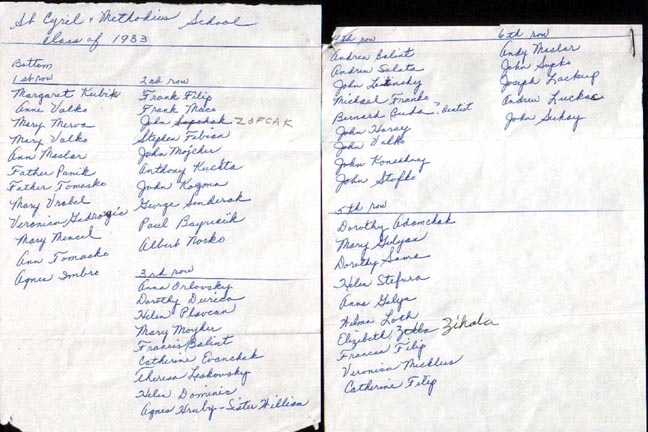 St Cyril & Methodius School
Class of 1933
Bottom
1st row
Margaret Kubik
Anna Valko
Mary Merva
Mary Valko
Ann Maslar
Father Panik
Father Tomasko
Mary Vrabel
Veronica Gedrogis
Mary Mencel
Ann Tomasko
Agnes Imbro
2nd row
Frank Filip
Frank Maco
John Sopchak ZOFCAK
Stephen Fabian
John Majcher
Anthony Kuchta
John Kozma
George Senderak
Paul
Albert Nosko
3rd row
Anna Orlovsky
Dorothy Durisa
Helen
Mary Moyher
Francis Balint
Catherine Evanchak
Theresa Leskovsky
Helen Dominic
Agnes Hruby - Sister William
4th row
Andrew Balint
Andrew Salata
John
Michael Franko
Bernard Buda - Dentist
John Harsy
John Valko
John Koneshay
John Stofko
5th row
Dorothy Adamchak
Mary Gelyas
Dorothy Sama
Helen Stefura
Anna Gelya
Wilma Loth
Elizabeth Zihala
Frances Filip
Veronica Micklus
Catherine Filip
6th row
Andy Maslar
John Supko
Joseph
Andrew Luckac
John Suhay